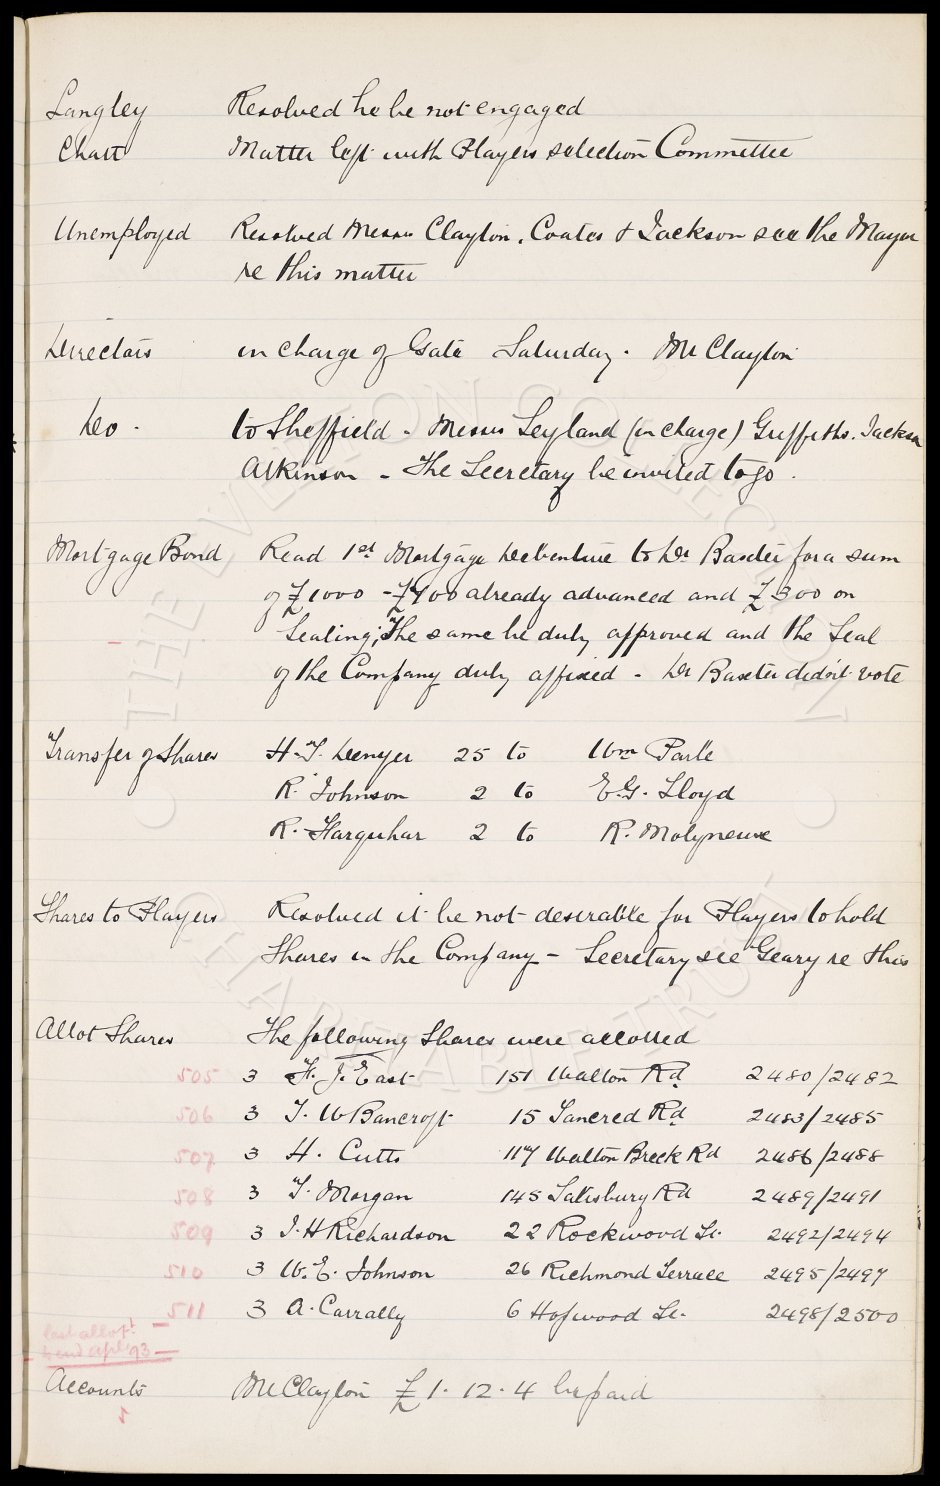 Langley Resolved he be not engaged
Chatt Matter left with Players selection Committee
Unemployed Resolved Messrs Clayton, Coates & Jackson see the Mayor
re this matter
Directors in charge of Gate Saturday. Mr Clayton
Do. to Sheffield - Messrs Leyland (in charge) Griffiths. Jackson
Atkinson - The Secretary be invited to go.
Mortgage Bond Read 1st Mortgage Debenture to Dr Baxter for a sum
of £1000 - £700 already advanced and £300 on
Sealing; The same be duly approved and the Seal
of the Company duly affixed - Dr Baxter didn't vote
Transfer of Shares H.T. Denyer 25 to Wm Parle
R. Johnson 2 to E.G. Lloyd
R. Farquhar 2 to R. Molyneux
Shares to Players Resolved it be not desirable for Players to hold
Shares in the Company - Secretary see Geary re this
Allot Shares The following Shares were allotted
505 3 F. J. East 151 Walton Rd 2480/2482
506 3 T. W Bancroft 15 Tancred Rd 2483/2485
507 3 H. Cutts 117 Walton Breck Rd 2486/2488
508 3 T. Morgan 145 Salisbury Rd 2489/2491
509 3 J. H Richardson 22 Rockwood St. 2492/2494
510 3 W. E. Johnson 26 Richmond Terrace 2495/2497
511 3 A. Carrally 6 Hopwood St. 2498/2500
last allot.
93
Accounts Mr Clayton £1.12.4 be paid
1
THE EVERTON COLLECTION
CHARITABLE TRUST